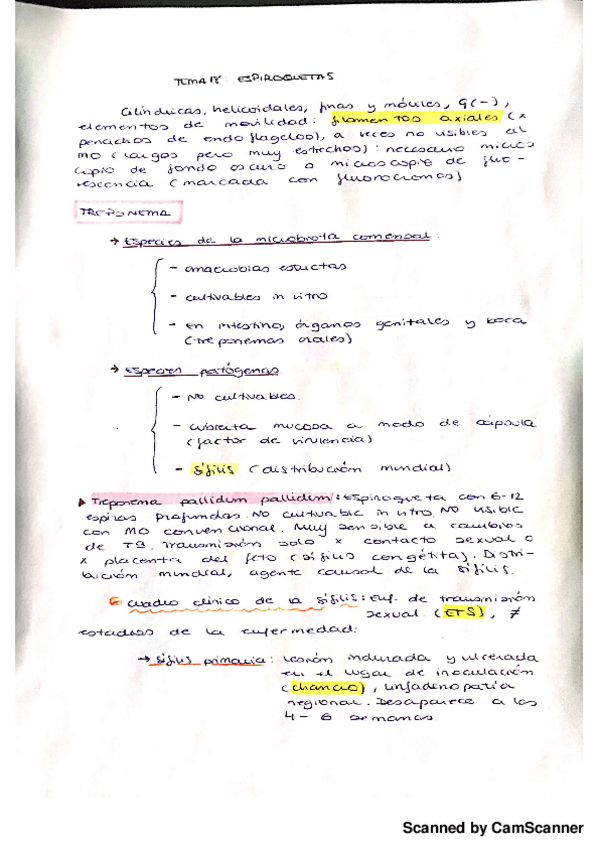 TEMA 18: ESPIROQUETAS
Cilíndricas, helicoidales, finas y móviles, G(-),
elementos de movilidad: filamentos axiales (x
penachos de endoflagelos), a veces no visibles al
MO (largos pero muy estrechos): necesario micros
copio de fondo oscuro o microscopio de fluo-
rescencia (marcada con fluorocromos)
TREPONEMA
→ Especies de la microbiota comensal:
- anaerobias estrictas
- cultivables in vitro
- en intestino, órganos genitales y boca
(treponemas orales)
→ Especies patógenas
- No cultivables.
- cubierta mucosa a modo de cápsula
(factor de virulencia)
- Sífilis (distribución mundial)
▸ Treponema pallidum pallidum: Espiroqueta con 6-12
espiras profundas. No cultivable in vitro. No visible
con MO convencional. Muy sensible a cambios
de Tª. Transmisión solo x contacto sexual o
x placenta del feto (sífilis congétita). Distri-
bución mundial, agente causal de la sífilis.
Cuadro clínico de la sífilis: Enf. de transmisión
sexual. (ETS), ≠
estadios de la enfermedad:
→ Sífilis primaria: Lesión indurada y ulcerada
en el lugar de inoculación
(chancro), linfadenopatía
regional. Desaparece a las
4-6 semanas
Scanned by CamScanner